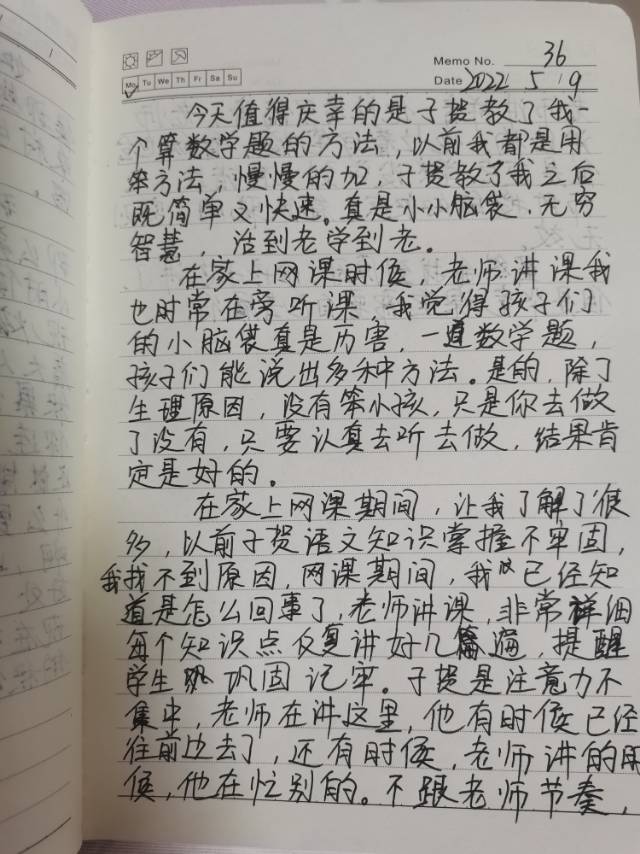 Memo No. 36
Mo Tu We Th Fr Sa Su
Date 2022 5 19
今天值得庆幸的是子贺教了我一
个算数学题的方法，以前我都是用
笨方法，慢慢的加，子贺教了我之后
既简单又快速。真是小小脑袋，无穷
智慧，活到老学到老。
在家上网课时候，老师讲课我
也时常在旁听课，我觉得孩子们
的小脑袋真是历害，一道数学题，
孩子们能说出多种方法。是的，除了
生理原因，没有笨小孩，只是你去做
了没有，只要认真去听去做，结果肯
定是好的。
在家上网课期间，让我了解了很
多，以前子贺语文知识掌握不牢固，
我找不到原因，网课期间，我已经知
道是怎么回事了，老师讲课，非常详细
每个知识点反复讲好几遍，提醒
学生巩固记牢。子贺是注意力不
集中，老师在讲这里，他有时候已经
往前边去了，还有时候，老师讲的时
候，他在忙别的。不跟老师节奏，